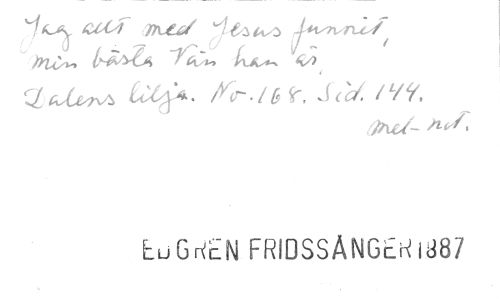 Jag allt med Jesus funnit,
min bästa Vän han är,
Dalens lilja. No. 168. Sid. 144.
mel-not.
EDGREN FRIDSSÅNGER 1887